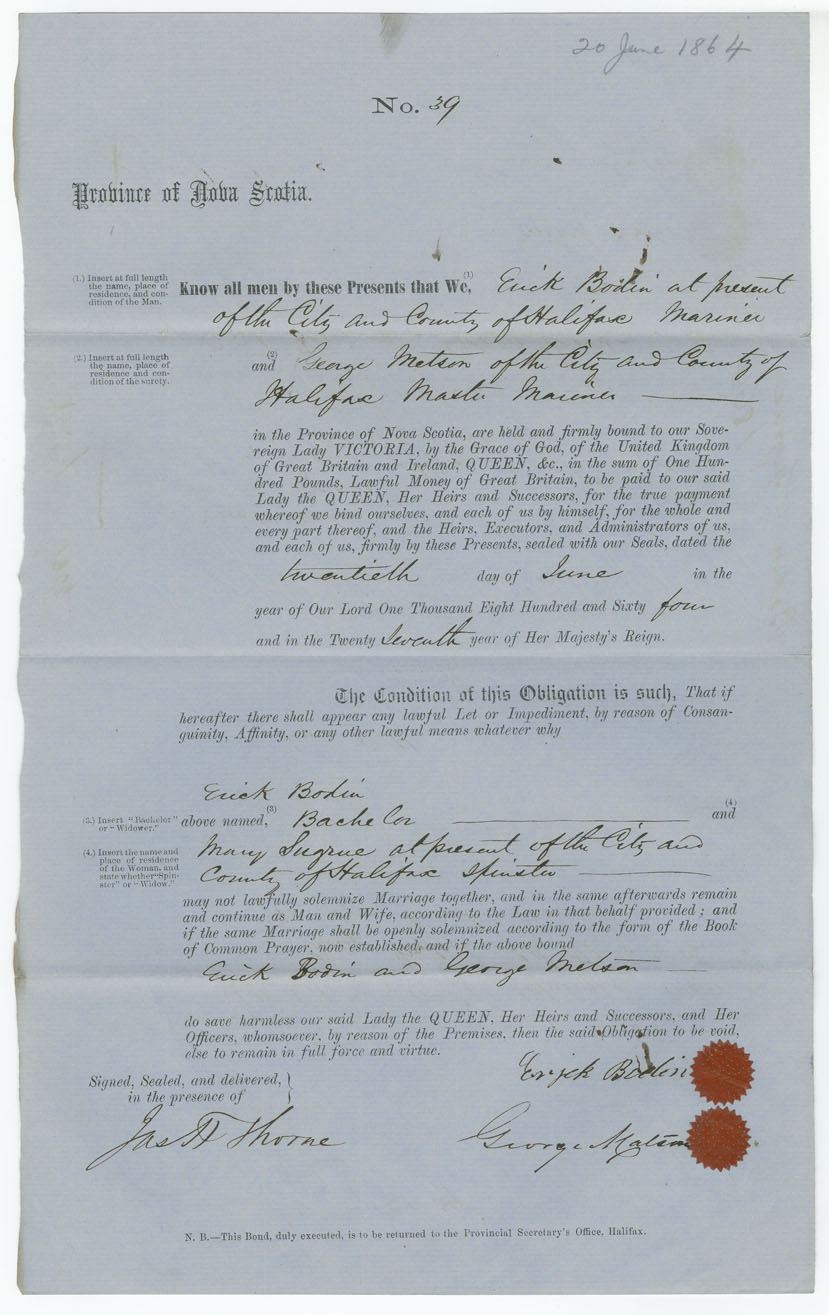 20 June 1864
No. 39
Province of Nova Scotia.
(1.) Insert at full length
the name, place of
residence, and con-
dition of the Man.
Know all men by these Presents that We, (1) Erick Bodin at present
of the City and County of Halifax Mariner
(2.) Insert at full length
the name, place of
residence and con-
dition of the surety.
and (2) George Metson of the City and County of
Halifax Master Mariner
in the Province of Nova Scotia, are held and firmly bound to our Sove-
reign Lady VICTORIA, by the Grace of God, of the United Kingdom
of Great Britain and Ireland, QUEEN, &c., in the sum of One Hun-
dred Pounds, Lawful Money of Great Britain, to be paid to our said
Lady the QUEEN, Her Heirs and Successors, for the true payment
whereof we bind ourselves, and each of us by himself, for the whole and
every part thereof, and the Heirs, Executors, and Administrators of us,
and each of us, firmly by these Presents, sealed with our Seals, dated the
twentieth day of June in the
year of Our Lord One Thousand Eight Hundred and Sixty four
and in the Twenty Seventh year of Her Majesty's Reign.
The Condition of this Obligation is such, That if
hereafter there shall appear any lawful Let or Impediment, by reason of Consan-
guinity, Affinity, or any other lawful means whatever why
Erick Bodin
(3.) Insert "Bachelor"
or "Widower."
above named, (3) Bachelor and (4)
(4.) Insert the name and
place of residence
of the Woman, and
state whether "Spin-
ster" or "Widow."
Mary Sugrue at present of the City and
County of Halifax Spinster
may not lawfully solemnize Marriage together, and in the same afterwards remain
and continue as Man and Wife, according to the Law in that behalf provided; and
if the same Marriage shall be openly solemnized according to the form of the Book
of Common Prayer, now established, and if the above bound
Erick Bodin and George Metson
do save harmless our said Lady the QUEEN, Her Heirs and Successors, and Her
Officers, whomsoever, by reason of the Premises, then the said Obligation to be void,
else to remain in full force and virtue.
Erick Bodin
Signed, Sealed, and delivered,
in the presence of
Jas H Thorne
George Matson
N. B.—This Bond, duly executed, is to be returned to the Provincial Secretary's Office, Halifax.